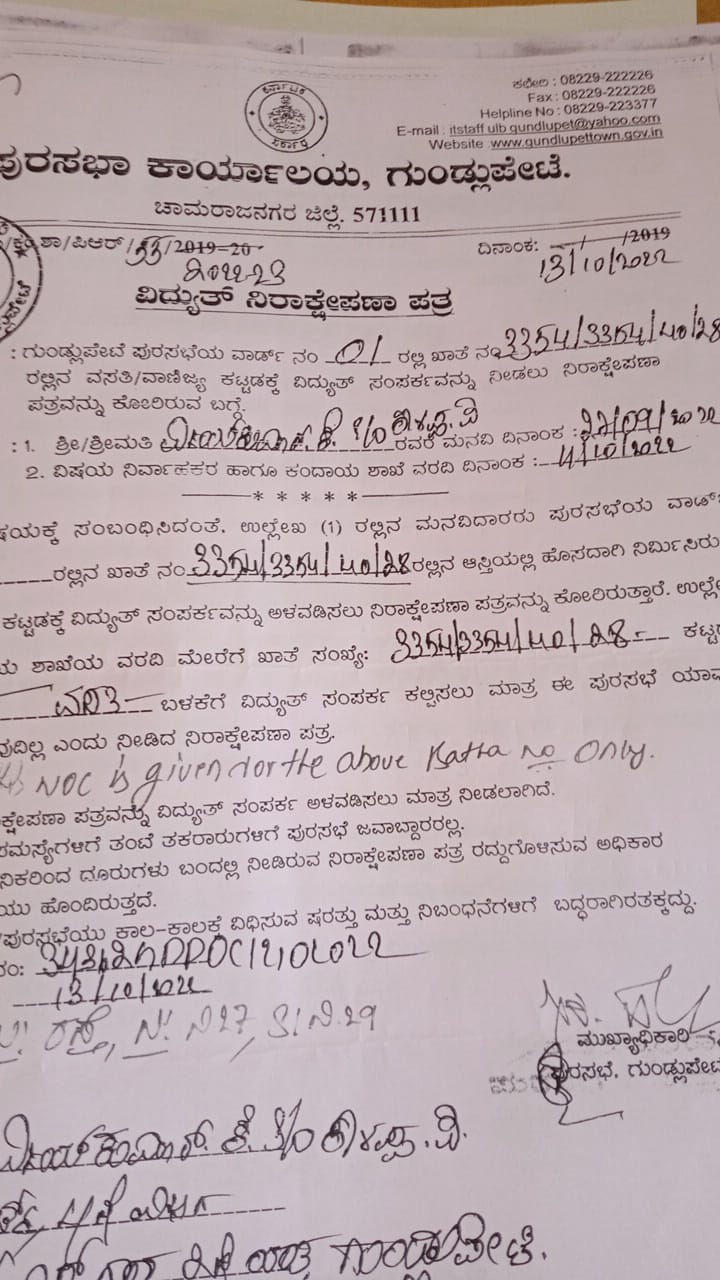 ಕಛೇರಿ : 08229-222226
Fax : 08229-222226
Helpline No : 08229-223377
E-mail : itstaff ulb gundlupet@yahoo.com
Website :www.gundlupettown.gov.in
ಪುರಸಭಾ ಕಾರ್ಯಾಲಯ, ಗುಂಡ್ಲುಪೇಟೆ.
ಚಾಮರಾಜನಗರ ಜಿಲ್ಲೆ. 571111
ಶಾ/ಪಿಆರ್/53/2019-20 ದಿನಾಂಕ: __/__/2019
2022-23 13/10/2022
ವಿದ್ಯುತ್ ನಿರಾಕ್ಷೇಪಣಾ ಪತ್ರ
: ಗುಂಡ್ಲುಪೇಟೆ ಪುರಸಭೆಯ ವಾರ್ಡ್ ನಂ 01 ರಲ್ಲಿ ಖಾತೆ ನಂ 3354/3354/40/28
ರಲ್ಲಿನ ವಸತಿ/ವಾಣಿಜ್ಯ ಕಟ್ಟಡಕ್ಕೆ ವಿದ್ಯುತ್ ಸಂಪರ್ಕವನ್ನು ನೀಡಲು ನಿರಾಕ್ಷೇಪಣಾ
ಪತ್ರವನ್ನು ಕೋರಿರುವ ಬಗ್ಗೆ.
: 1. ಶ್ರೀ/ಶ್ರೀಮತಿ ಕೆ. S/o ರವರ ಮನವಿ ದಿನಾಂಕ : 22/09/2022
2. ವಿಷಯ ನಿರ್ವಾಹಕರ ಹಾಗೂ ಕಂದಾಯ ಶಾಖೆ ವರದಿ ದಿನಾಂಕ : 4/10/2022
* * * * *
ಷಯಕ್ಕೆ ಸಂಬಂಧಿಸಿದಂತೆ. ಉಲ್ಲೇಖ (1) ರಲ್ಲಿನ ಮನವಿದಾರರು ಪುರಸಭೆಯ ವಾರ್ಡ್
ರಲ್ಲಿನ ಖಾತೆ ನಂ 3354/3354/40/28 ರಲ್ಲಿನ ಆಸ್ತಿಯಲ್ಲಿ ಹೊಸದಾಗಿ ನಿರ್ಮಿಸಿರು
ಕಟ್ಟಡಕ್ಕೆ ವಿದ್ಯುತ್ ಸಂಪರ್ಕವನ್ನು ಅಳವಡಿಸಲು ನಿರಾಕ್ಷೇಪಣಾ ಪತ್ರವನ್ನು ಕೋರಿರುತ್ತಾರೆ. ಉಲ್ಲೇ
ಯ ಶಾಖೆಯ ವರದಿ ಮೇರೆಗೆ ಖಾತೆ ಸಂಖ್ಯೆ: 3354/3354/40/28 ಕಟ್ಟಡ
ವಸತಿ ಬಳಕೆಗೆ ವಿದ್ಯುತ್ ಸಂಪರ್ಕ ಕಲ್ಪಿಸಲು ಮಾತ್ರ ಈ ಪುರಸಭೆ ಯಾವ
ವುದಿಲ್ಲ ಎಂದು ನೀಡಿದ ನಿರಾಕ್ಷೇಪಣಾ ಪತ್ರ.
NOC is given for the above Katha no only.
ಕ್ಷೇಪಣಾ ಪತ್ರವನ್ನು ವಿದ್ಯುತ್ ಸಂಪರ್ಕ ಅಳವಡಿಸಲು ಮಾತ್ರ ನೀಡಲಾಗಿದೆ.
ಸಮಸ್ಯೆಗಳಿಗೆ ತಂಟೆ ತಕರಾರುಗಳಿಗೆ ಪುರಸಭೆ ಜವಾಬ್ದಾರರಲ್ಲ.
ನಿಕರಿಂದ ದೂರುಗಳು ಬಂದಲ್ಲಿ ನೀಡಿರುವ ನಿರಾಕ್ಷೇಪಣಾ ಪತ್ರ ರದ್ದುಗೊಳಿಸುವ ಅಧಿಕಾರ
ಯು ಹೊಂದಿರುತ್ತದೆ.
/ಪುರಸಭೆಯು ಕಾಲ-ಕಾಲಕ್ಕೆ ವಿಧಿಸುವ ಷರತ್ತು ಮತ್ತು ನಿಬಂಧನೆಗಳಿಗೆ ಬದ್ಧರಾಗಿರತಕ್ಕದ್ದು.
13/10/2022
ಮುಖ್ಯಾಧಿಕಾರಿ
ಪುರಸಭೆ, ಗುಂಡ್ಲುಪೇಟೆ